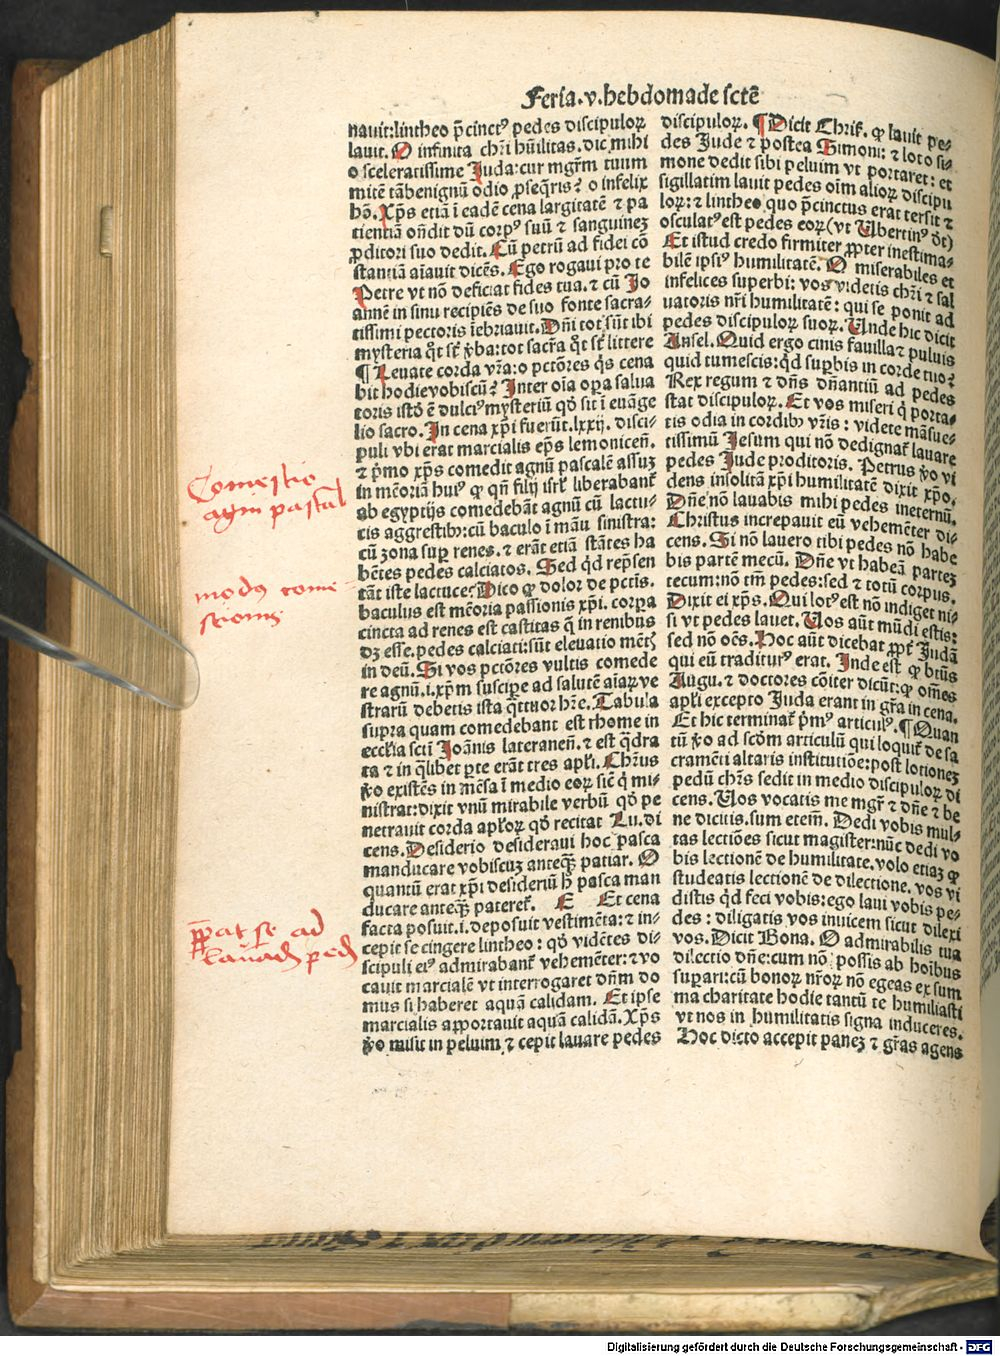 Feria.v.hebdomade sctē
nauit:lintheo p̄cinctꝰ pedes discipuloꝝ
lauit. O infinita chr̄i hūilitas. dic mihi
o sceleratissime Juda: cur mgr̄m tuum
mitē tābenignū odio ꝓseq̄ris? o infelix
hō. Xp̄s etiā ī eadē cena largitatē ⁊ pa
tientiā on̄dit dū corpꝰ suū ⁊ sanguinez
ꝓditori suo dedit. Cū petrū ad fidei cō
stantiā aīauit dicēs. Ego rogaui pro te
Petre vt nō deficiat fides tua. ⁊ cū Jo
annē in sinu recipiēs de suo fonte sacra-
tissimi pectoris īebriauit. Dn̄i tot sūt ibi
mysteria q̊t st̄ ꝟba: tot sacr̄a q̊t st̄ littere
¶ Leuate corda vr̄a: o pctōres q̓s cena
bit hodie vobiscū? Inter oīa oꝑa salua
toris istō ē dulciꝰ mysteriū qd̓ sit ī euāge
lio sacro. In cena xp̄i fuerūt.lxxij. disci-
puli vbi erat marcialis ep̄s lemonicen̄.
⁊ p̄mo xp̄s comedit agnū pascalē assuz
in mēoriā huiꝰ ꝙ qn̄ filij isrl̓ liberabant̄
ab egyptijs comedebāt agnū cū lactu-
cis aggrestibꝰ: cū baculo ī māu sinistra:
cū zona suꝑ renes. ⁊ erāt etiā stātes ha
bētes pedes calciatos. Sed qd̓ rep̄sen
tāt iste lactuce? Dico ꝙ dolor de pctīs.
baculus est mēoria passionis xp̄i. corpa
cincta ad renes est castitas q̄ in renibus
dꝫ esse. pedes calciati: sūt eleuatio mēt̄
in deū. Si vos pctōres vultis comede
re agnū.i.xp̄m suscipe ad salutē aīaꝝ ve
straꝝ debetis ista q̄ttuor hr̄e. Tabula
supra quam comedebant est rhome in
eccl̓ia sctī Joānis lateranen̄. ⁊ est q̄dra
ta ⁊ in q̄libet ꝑte erāt tres apl̓i. Chr̄us
ꝟo existēs in mēsa ī medio eoꝝ sic̄ q̓ mi-
nistrat: dixit vnū mirabile verbū qd̓ pe
netrauit corda apl̓oꝝ qd̓ recitat Lu. di
cens. Desiderio desideraui hoc pasca
manducare vobiscuz anteq̄ꝫ patiar. O
quantū erat xp̄i desideriū h̓ pasca man
ducare anteq̄ꝫ pateret̄. E Et cena
facta posuit.i.deposuit vestimēta: ⁊ in-
cepit se cingere lintheo: qd̓ vidētes di-
scipuli eiꝰ admirabant̄ vehemēter: ⁊ vo
cauit marcialē vt interrogaret dn̄m do
mus si haberet aquā calidam. Et ipse
marcialis apportauit aquā calidā. Xp̄s
ꝟo misit in peluim ⁊ cepit lauare pedes
discipuloꝝ. ¶ Dicit Chris̄. ꝙ lauit pe-
des Jude ⁊ postea Simoni: ⁊ loco si-
mone dedit sibi peluim vt portaret: et
sigillatim lauit pedes oīm alioꝝ discipu
loꝝ: ⁊ lintheo quo p̄cinctus erat tersit ⁊
osculatꝰ est pedes eoꝝ (vt Ubertinꝰ dt̄)
Et istud credo firmiter ꝓpter inestima-
bilē ipsiꝰ humilitatē. O miserabiles et
infelices superbi: vos videtis chr̄i ⁊ sal
uatoris nr̄i humilitatē: qui se ponit ad
pedes discipuloꝝ suoꝝ. Unde hic dicit
Ansel. Quid ergo cinis fauilla ⁊ puluis
quid tumescis: qd̓ suꝑbis in corde tuo?
Rex regum ⁊ dn̄s dn̄antiū ad pedes
stat discipuloꝝ. Et vos miseri q̓ porta-
tis odia in cordibꝰ vr̄is: videte māsue-
tissimū Jesum qui nō dedignat̄ lauare
pedes Jude proditoris. Petrus ꝟo vi
dens insolitā xp̄i humilitatē dixit xp̄o.
Dn̄e nō lauabis mihi pedes ineternū.
Christus increpauit eū vehemēter di-
cens. Si nō lauero tibi pedes nō habe
bis partē mecū. Dn̄e vt habeā partez
tecum: nō tm̄ pedes: sed ⁊ totū corpus.
Dixit ei xp̄s. Qui lotꝰ est nō indiget ni-
si vt pedes lauet. Uos aūt mūdi estis:
sed nō oēs. Hoc aūt dicebat ꝓpt̄ Judā
qui eū traditurꝰ erat. Inde est ꝙ btūs
Augu. ⁊ doctores cōiter dicūt: ꝙ om̄es
apl̓i excepto Juda erant in gr̄a in cena.
Et hic terminat̄ p̄mꝰ articulꝰ. ¶ Quan
tū ꝟo ad scd̓m articulū qui loquit̄ de sa
cramēti altaris institutiōe: post lotionez
pedū chr̄s sedit in medio discipuloꝝ di
cens. Uos vocatis me mgr̄ ⁊ dn̄e ⁊ be
ne dicitis. sum etem̄. Dedi vobis mul-
tas lectiōes sicut magister: nūc dedi vo
bis lectionē de humilitate. volo etiaz ꝙ
studeatis lectionē de dilectione. vos vi
distis qd̓ feci vobis: ego laui vobis pe-
des: diligatis vos inuicem sicut dilexi
vos. Dicit Bona. O admirabilis tua
dilectio dn̄e: cum nō possis ab hoībus
suꝑari: cū bonoꝝ nr̄oꝝ nō egeas ex sum
ma charitate hodie tantū te humiliasti
vt nos in humilitatis signa induceres.
Hoc dicto accepit panez ⁊ gr̄as agens
Comestio
agni pascal
modꝰ come
stionis
ꝓpat se ad
lauād ped
Digitalisierung gefördert durch die Deutsche Forschungsgemeinschaft - DFG